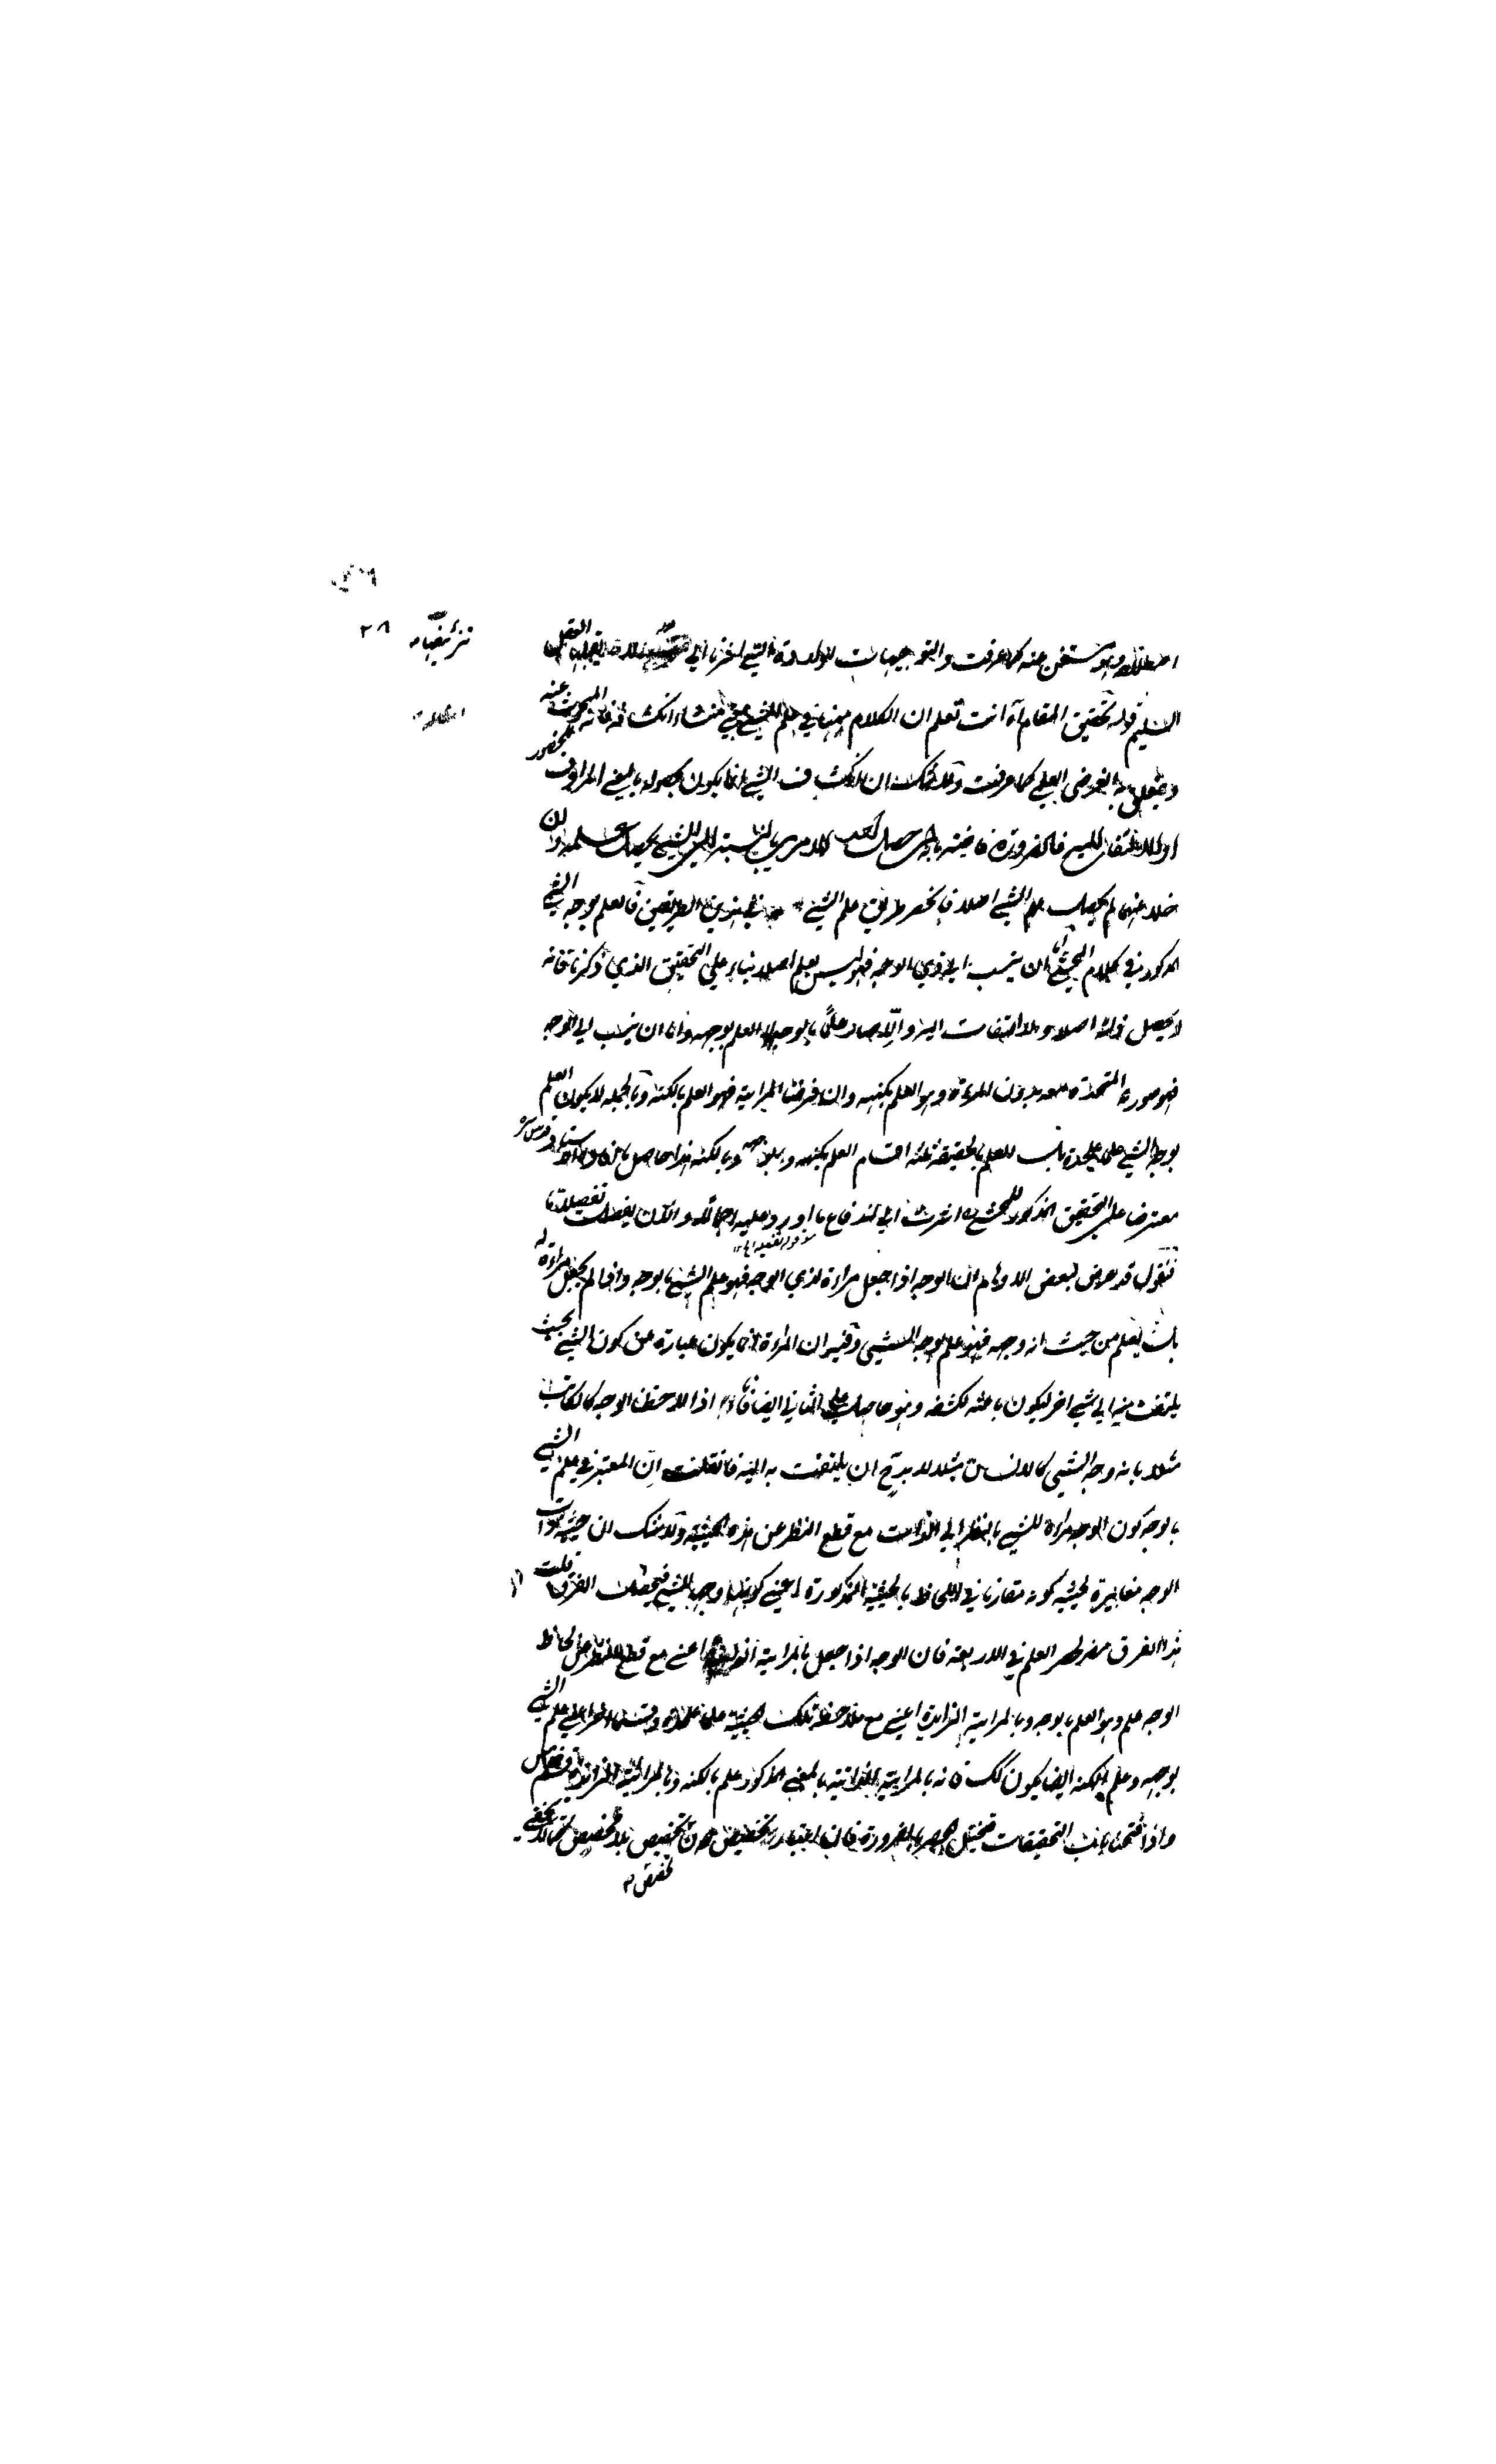 ٢٨
وهو مستغن عنه كما عرفت والتوجيهات الواردة التي العقل
السليم قوله تحقيق المقام آه انت تعلم ان الكلام ههنا في علم الشيء منشاء انكشافه فانه المبحوث عنه
الغرض العلمي كما عرفت ولا شك ان انكشاف الشيء انما يكون بحصوله بالمعنى المرادف للحضور
او الالتفات اليه فالضرورة قاضية بانه حصل احد الامرين بالنسبة الى الشيء يحصل علمه وان
خلا عنهما لم يحصل علم الشيء اصلا فانحصر طريق علم الشيء في هذين الطريقين فالعلم بوجه الشيء
المذكور في كلام المحشي اما ان ينسب الى ذي الوجه فهو ليس بعلم اصلا بناء على التحقيق الذي ذكرنا فانه
لا يحصل ذاته اصلا ولا التفات اليه والا لصار علما بالوجه لا العلم بوجهه واما ان ينسب الى الوجه
فهو صورته المتحدة معه بدون المرءاة وهو العلم بكنهه وان فرضنا المرايية فهو العلم بالكنه وبالجملة لا يكون العلم
بوجه الشيء علما عليحدة بل للعلم بالحقيقة ثلثة اقسام العلم بكنهه وبالوجه وبالكنه هذا حاصل ما افاد استاذ قدس سره
معترضا على التحقيق المذكور للمحشي اشرت الى اندفاع ما اورد عليه اجمالا والآن يفصل تفصيلا
فنقول قد عرض لبعض الاوهام ان الوجه اذا جعل مراءة لذي الوجه فهو علم الشيء بالوجه واذا لم يجعل مراءة له
بل يعلم من حيث انه وجهه فهو علم بوجه الشيء وفيه ان المراءة انما يكون عبارة عن كون الشيء بحيث
يلتفت منه الى شيء اخر ليكون باعثه لكشفه وهو حاصل على الثاني ايضا فانه اذا لاحظنا الوجه كالكاتب
مثلا بانه وجه الشيء كالانسان مثلا لا بد ح ان يلتفت به اليه فان قلت ان المعتبر في علم الشيء
بالوجه كون الوجه مراءة للشيء بالنظر الى الذات مع قطع النظر عن هذه الحيثية ولا شك ان حيثية ذات
الوجه مغايرة لحيثية كونه مقارنا في اللحاظ بالحيثية المذكورة اعني كونه وجها للشيء فيحصل الفرق قلت
هذا الفرق مضر لحصر العلم في الاربعة فان الوجه اذا جعل بالمرايية اعني مع قطع النظر عن لحاظ
الوجه علم وهو العلم بالوجه وبالمرايية الزايدة اعني مع ملاحظة تلك الحيثية علم الشيء
بوجهه وعلم الكنه ايضا يكون كك فانه بالمرايية الذاتية بالمعنى المذكور علم بالكنه وبالمرايية الزايدة
واذا فتحنا باب التحقيقات فيختل الحصر بالضرورة فان اعتبار تخصيص دون تخصيص بلا مخصص كما لا يخفى